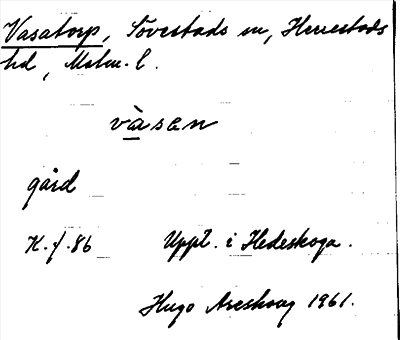 Vasatorp, Tovestads sn, Herrestads
hd, Malm. l.
vàsen
gård
K. f. 86 Uppl. i Hedeskoga.
Hugo Areskoug 1961.